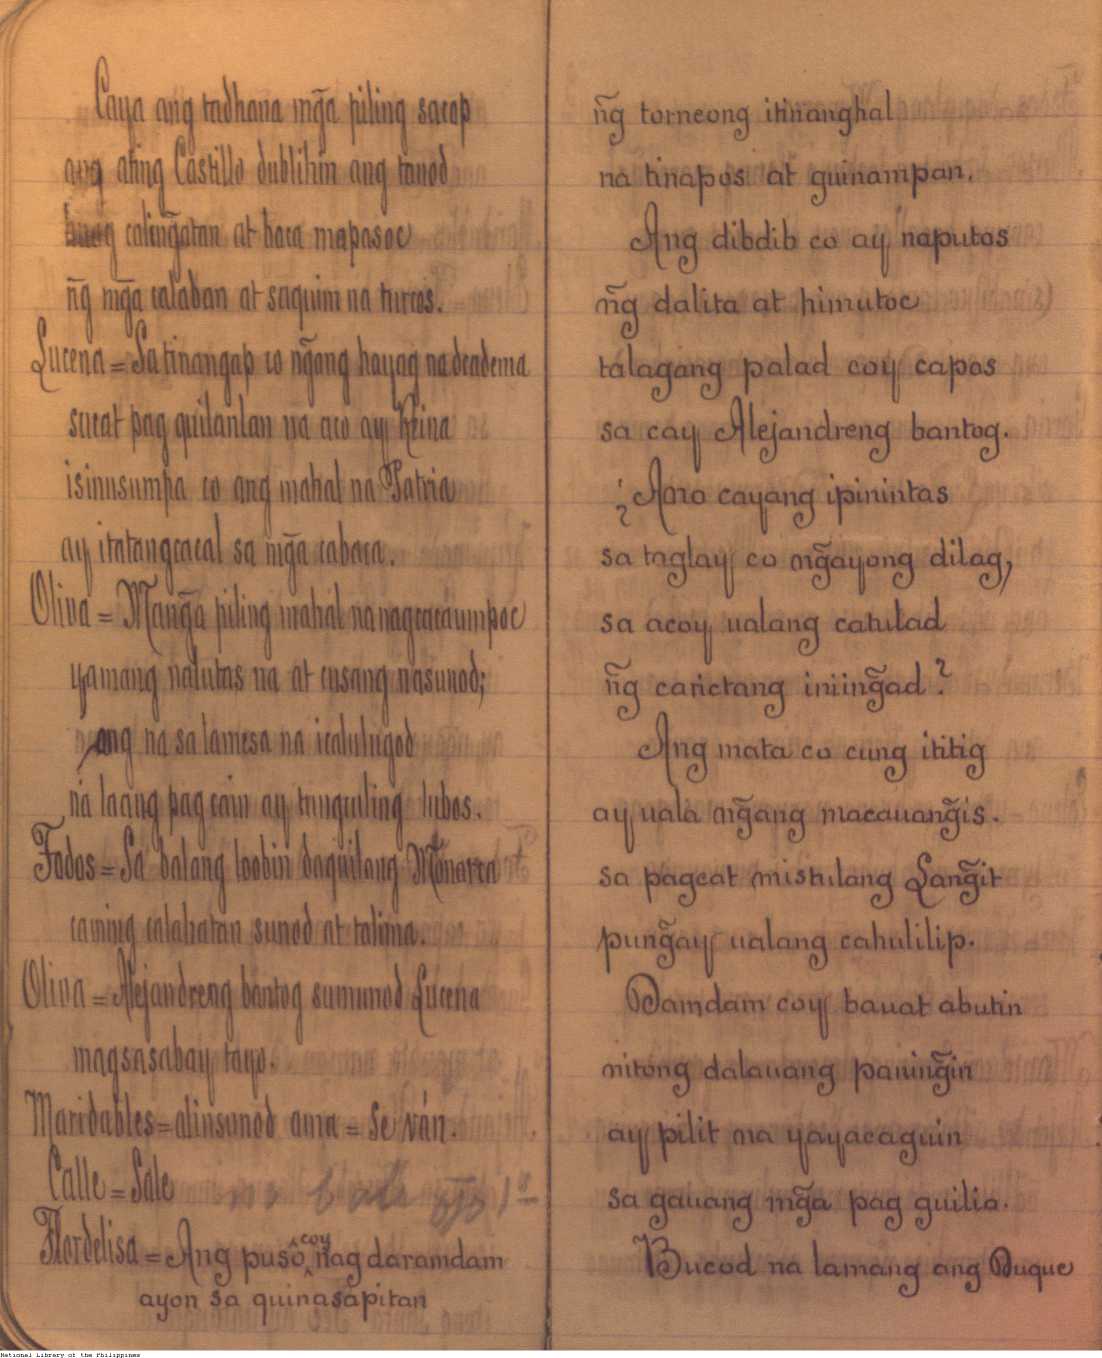 Caya ang tadhana mg̃a piling sacop
ang ating Castillo dublihin ang tanod
caling̃atan at baca mapasoc
ñg mg̃a calaban at saquim na turcos.
Lucena = Sa tinangap co ng̃ang hayag na deadema
sucat pag quilanlan na aco ay Reina
isinusumpa co ang mahal na Patria
ay itatangcacal sa mg̃a cabaca.
Oliva = Mang̃a piling mahal na nagcacaumpoc
yamang nalutas na at cusang nasunod;
ang na sa lamesa na icalulugod
na laang pag cain ay tunguiling lubos.
Todos = Sa balang loobin daquilang Monarca
caming calahatan sunod at talima.
Oliva = Alejandreng bantog sumunod Lucena
magsasabay tayo.
Maridables = alinsunod ama = Se ván.
Calle = Sale
no bale ojo 1º
Flordelisa = Ang puso coy nag daramdam
ayon sa quinasapitan
ñg torneong itinanghal
na tinapos at guinampan.
Ang dibdib co ay naputos
ñg dalita at himutoc
talagang palad coy capos
sa cay Alejandreng bantog.
¿Ano cayang ipinintas
sa taglay co ng̃ayong dilag,
sa acoy ualang catulad
ñg carictang iniing̃ad?
Ang mata co cung ititig
ay uala ng̃ang macauang̃is.
sa pagcat mistulang Lang̃it
pung̃ay ualang cahulilip.
Damdam coy bauat abutin
nitong dalauang paning̃in
ay pilit na yayacaguin
sa gauang mg̃a pag guilio.
Bucod na lamang ang Duque
National Library of the Philippines